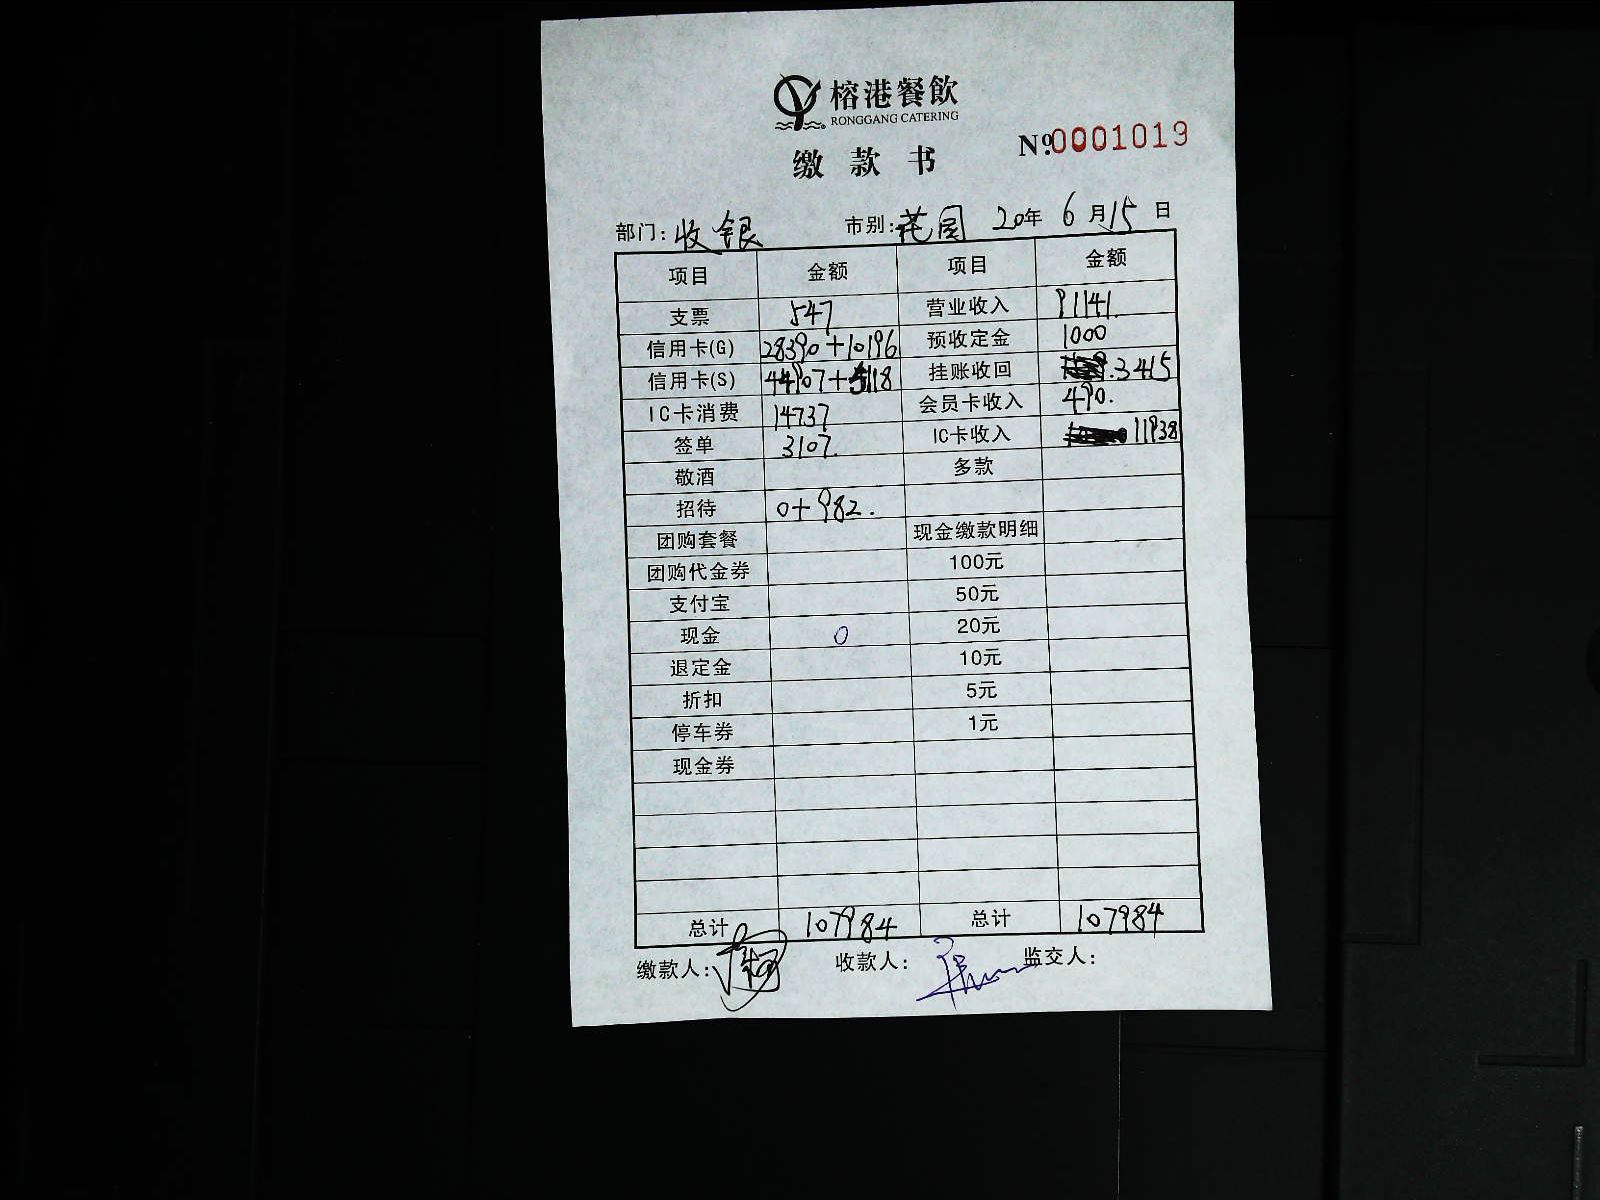 榕港餐飲
RONGGANG CATERING
缴款书
№0001019
部门:收银 市别:花园 20年 6月15日
项目 金额 项目 金额
支票 547 营业收入 91141.
信用卡(G) 28390+10196 预收定金 1000
信用卡(S) 44907+5118 挂账收回 .3415
IC卡消费 14737 会员卡收入 490.
签单 3107. IC卡收入 11938
敬酒 多款
招待 0+982.
团购套餐 现金缴款明细
团购代金券 100元
支付宝 50元
现金 0 20元
退定金 10元
折扣 5元
停车券 1元
现金券
总计 107984 总计 107984
缴款人: 收款人: 监交人: